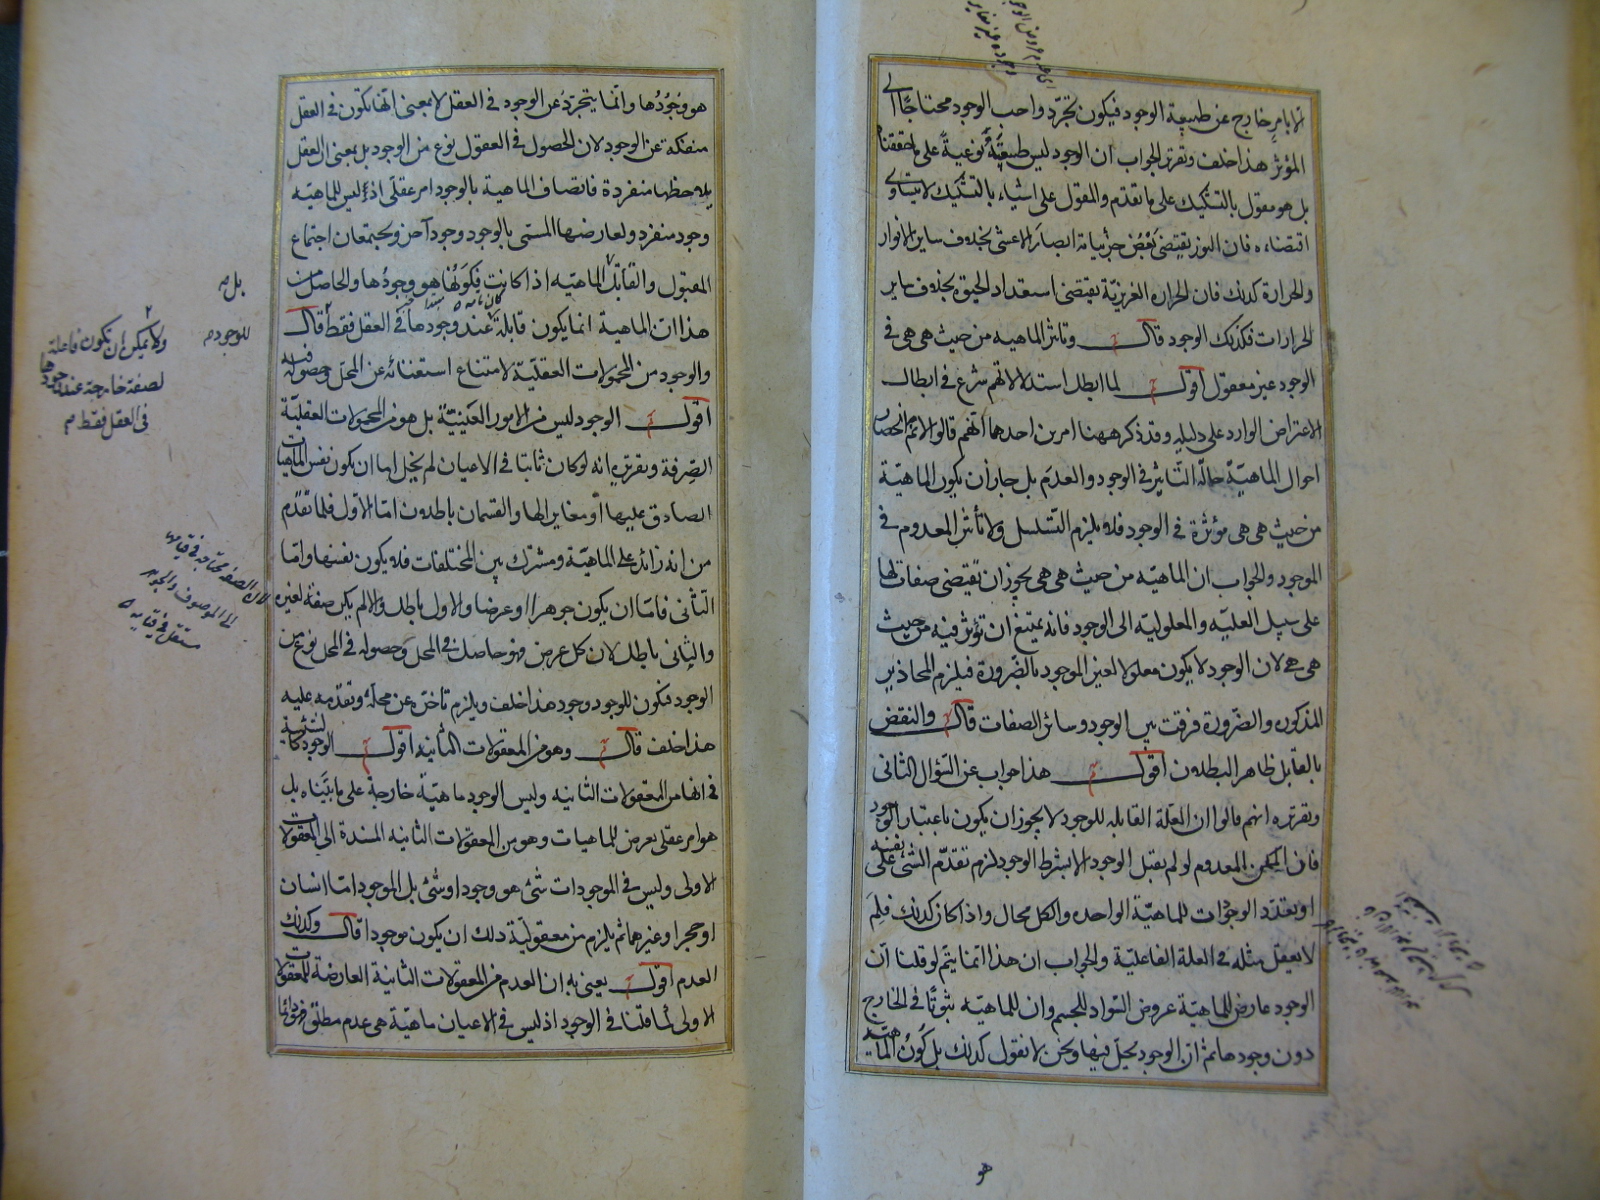 الا بامر خارج عن طبيعة الوجود فيكون تجرد واجب الوجود محتاجا الى
المؤثر هذا خلف وتقرير الجواب ان الوجود ليس طبيعة نوعية على ما حققناه
بل هو مقول بالتشكيك على ما تقدم والمقول على اشياء بالتشكيك لا يتساوى
اقتضاءه فان النور يقتضى بعض جزئياته ابصار الاعشى بخلاف ساير الانوار
والحرارة كذلك فان الحرارة الغريزية يقتضى استعداد الحيوة بخلاف ساير
الحرارات فكذلك الوجود قال وتاثير الماهيه من حيث هى هى فى
الوجود غير معقول اقول لما ابطل استدلالاتهم شرع فى ابطال
الاعتراض الوارد على دليله وقد ذكر ههنا امرين احدهما انهم قالوا لا نم انحصار
احوال الماهية حالة التاثير فى الوجود والعدم بل جاز أن يكون الماهية
من حيث هى هى مؤثرة فى الوجود فلا يلزم التسلسل ولا تأثير المعدوم فى
الموجود والجواب ان الماهيه من حيث هى هى يجوز ان تقتضى صفات لها
على سبيل العليه والمعلوليه الى الوجود فانه يمتنع ان تؤثر فيه من حيث
هى هى لان الوجود لا يكون معلولا لغير الموجود بالضرورة فيلزم المحاذير
المذكوره والضرورة فرقت بين الوجود وسائر الصفات قال والنقض
بالقابل ظاهر البطلان اقول هذا جواب عن السؤال الثانى
وتقريره انهم قالوا ان العلة القابله للوجود لا يجوز ان يكون باعتبار الوجود
فان الممكن المعدوم لو لم يقبل الوجود الا بشرط الوجود لزم تقدم الشئ على نفسه
او تعدد الوجودات للماهية الواحده والكل محال واذا كان كذلك فلم
لا يعقل مثله فى العلة الفاعلية والجواب ان هذا انما يتم لو قلنا ان
الوجود عارض للماهية عروض السواد للجسم وان للماهيه ثبوتا فى الخارج
دون وجودها ثم ان الوجود يحل فيها ونحن لا نقول كذلك بل كون الماهيه
هو
هو وجودها وانما يتجرد عن الوجود فى العقل لا بمعنى انها تكون فى العقل
منفكة عن الوجود لان الحصول فى العقول نوع من الوجود بل بمعنى ان العقل
يلاحظها منفردة فاتصاف الماهية بالوجود امر عقلى اذ ليس للماهيه
وجود منفرد ولعارضها المسمى بالوجود وجود آخر ويجتمعان اجتماع
المقبول والقابل الماهيه اذا كانت فكونها هو وجودها والحاصل من
هذا ان الماهية انما يكون قابلة عند وجودها فى العقل فقط قال
والوجود من المحمولات العقلية لامتناع استغنائه عن المحل وحصوله فيه
اقول الوجود ليس من الامور العينية بل هو من المحمولات العقلية
الصرفة وتقريره انه لو كان ثابتا فى الاعيان لم يخل اما ان يكون نفس الماهيات
الصادق عليها أو مغايرا لها والقسمان باطلان اما الاول فلما تقدم
من انه زائد على الماهية ومشترك بين المختلفات فلا يكون نفسها واما
الثانى فاما ان يكون جوهرا او عرضا والاول باطل والا لم يكن صفة لغيره
والثانى باطل لان كل عرض فهو حاصل فى المحل وحصوله فى المحل نوع من
الوجود فيكون للوجود وجود هذا خلف ويلزم تاخره عن محله وتقدمه عليه
هذا خلف قال وهو من المعقولات الثانيه اقول الوجود كالشيئية
فى انها من المعقولات الثانيه وليس الوجود ماهية خارجة على ما بيناه بل
هو امر عقلى يعرض للماهيات وهو من المعقولات الثانيه المستندة الى المعقولات
الاولى وليس فى الموجودات شئ هو وجود او شئ بل الموجود اما انسان
او حجر او غيرهما ثم يلزم من معقولية ذلك ان يكون موجودا قال وكذلك
العدم اقول يعنى به ان العدم من المعقولات الثانية العارضة للمعقولات
الاولى كما قلنا فى الوجود اذ ليس فى الاعيان ماهية هى عدم مطلق فهو دائما
للوجود
ولا يمكن ان تكون فاعلة
لصفة خارجة عند وجودها
فى العقل فقط م
لان الصفة محتاجة فى قيامها
الى الموصوف والجوهر
مستقل فى قيامه